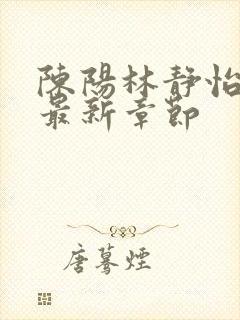 陳陽林靜怡
最新章節
唐驀煙